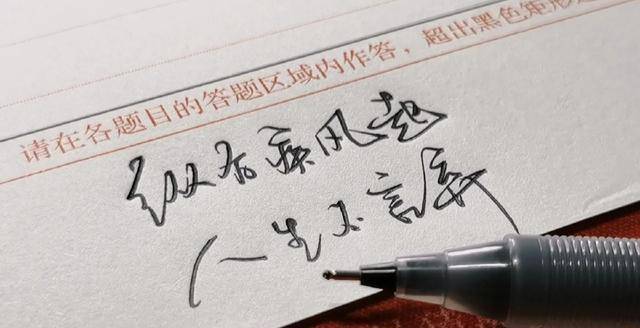 请在各题目的答题区域内作答，超出黑色矩形边
纵有疾风起
人生不言弃